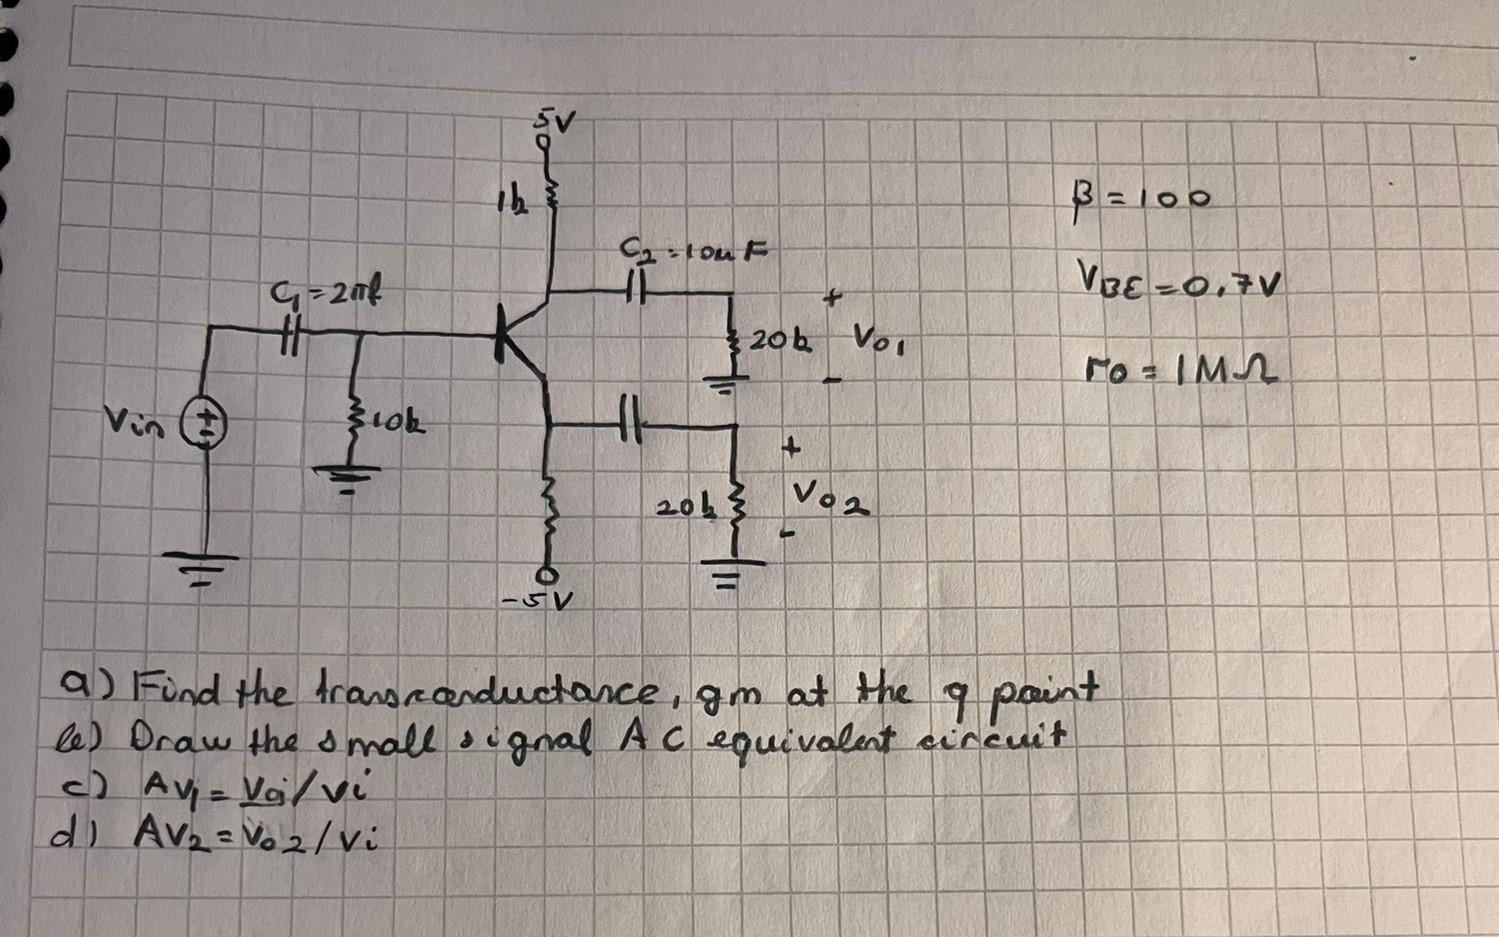 5V
1k
C2 = 10u F
C1 = 2nf
+
20k Vo1
-
Vin
+
-
10k
+
20k Vo2
-
-5V
β = 100
VBE = 0.7V
ro = 1MΩ
a) Find the transconductance, gm at the q point
b) Draw the small signal AC equivalent circuit
c) AV1 = Vo1/Vi
d) AV2 = Vo2/Vi